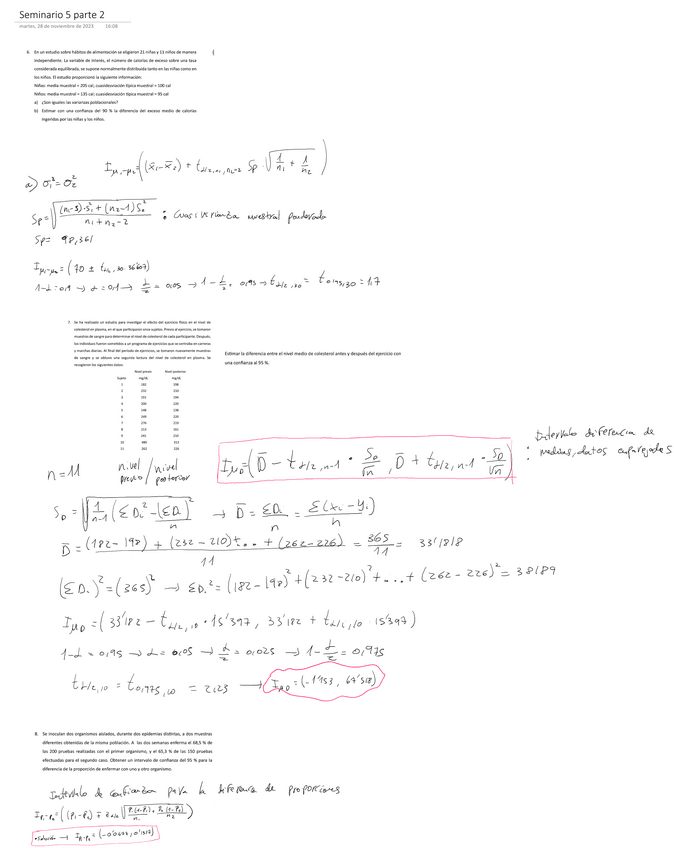 Seminario 5 parte 2
martes, 28 de noviembre de 2023 16:08
6. En un estudio sobre hábitos de alimentación se eligieron 21 niñas y 11 niños de manera
independiente. La variable de interés, el número de calorías de exceso sobre una tasa
considerada equilibrada, se supone normalmente distribuida tanto en las niñas como en
los niños. El estudio proporcionó la siguiente información:
Niñas: media muestral = 205 cal; cuasidesviación típica muestral = 100 cal
Niños: media muestral = 135 cal; cuasidesviación típica muestral = 95 cal
a) ¿Son iguales las varianzas poblacionales?
b) Estimar con una confianza del 90 % la diferencia del exceso medio de calorías
ingeridas por las niñas y los niños.
I μ₁-μ₂ = ((x̄₁-x̄₂) ± t α/2, n₁+n₂-2 Sp · √(1/n₁ + 1/n₂))
a) σ₁² = σ₂²
Sp = √(((n₁-1)·S₁² + (n₂-1) S₂²) / (n₁+n₂-2)) : Cuasivarianza muestral ponderada
Sp = 98,361
I μ₁-μ₂ = (70 ± t α/2, 30 · 36'607)
1-α = 0,9 → α = 0,1 → α/2 = 0,05 → 1-α/2 = 0,95 → t α/2, 30 = t 0,95, 30 = 1,7
7. Se ha realizado un estudio para investigar el efecto del ejercicio físico en el nivel de
colesterol en plasma, en el que participaron once sujetos. Previo al ejercicio, se tomaron
muestras de sangre para determinar el nivel de colesterol de cada participante. Después,
los individuos fueron sometidos a un programa de ejercicios que se centraba en carreras
y marchas diarias. Al final del periodo de ejercicios, se tomaron nuevamente muestras
de sangre y se obtuvo una segunda lectura del nivel de colesterol en plasma. Se
recogieron los siguientes datos:
Estimar la diferencia entre el nivel medio de colesterol antes y después del ejercicio con
una confianza al 95 %.
Nivel previo Nivel posterior
Sujeto mg/dL mg/dL
1 182 198
2 232 210
3 191 194
4 200 220
5 148 138
6 249 220
7 276 219
8 213 161
9 241 210
10 480 313
11 262 226
n = 11 nivel previo / nivel posterior
I μD = (D̄ - t α/2, n-1 · S_D/√n, D̄ + t α/2, n-1 · S_D/√n) : Intervalo diferencia de
medias, datos emparejados
S_D = √(1/(n-1) (Σ Dᵢ² - (ΣDᵢ)²/n)) → D̄ = ΣDᵢ/n = Σ(xᵢ - yᵢ)/n
D̄ = ((182-198) + (232-210) + ... + (262-226))/11 = 365/11 = 33'1818
(ΣDᵢ)² = (365)² → ΣDᵢ² = (182-198)² + (232-210)² + ... + (262-226)² = 38189
I μD = (33'182 - t α/2, 10 · 15'397, 33'182 + t α/2, 10 · 15'397)
1-α = 0,95 → α = 0,05 → α/2 = 0,025 → 1-α/2 = 0,975
t α/2, 10 = t 0,975, 10 = 2,23 → I μD = (-1'153, 67'518)
8. Se inoculan dos organismos aislados, durante dos epidemias distintas, a dos muestras
diferentes obtenidas de la misma población. A las dos semanas enferma el 68,5 % de
las 200 pruebas realizadas con el primer organismo, y el 65,3 % de las 150 pruebas
efectuadas para el segundo caso. Obtener un intervalo de confianza del 95 % para la
diferencia de la proporción de enfermar con uno y otro organismo.
Intervalo de confianza para la diferencia de proporciones
I P₁-P₂ = ((P₁-P₂) ∓ z α/2 √(P₁(1-P₁)/n₁ + P₂(1-P₂)/n₂))